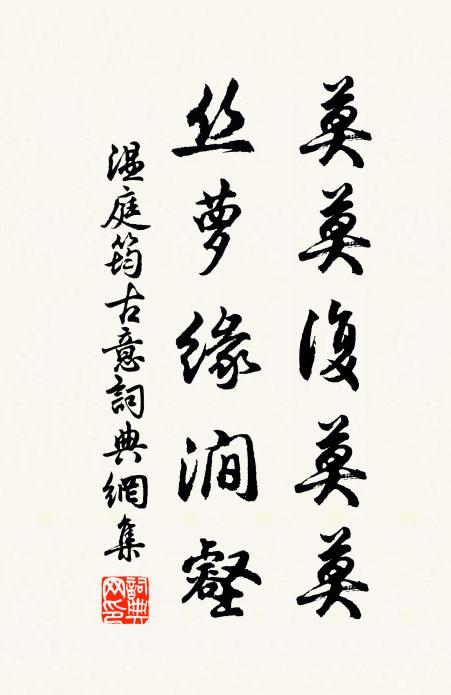 莫莫復莫莫
丝萝緣澗壑
温庭筠古意詞典網集
詞典
网印